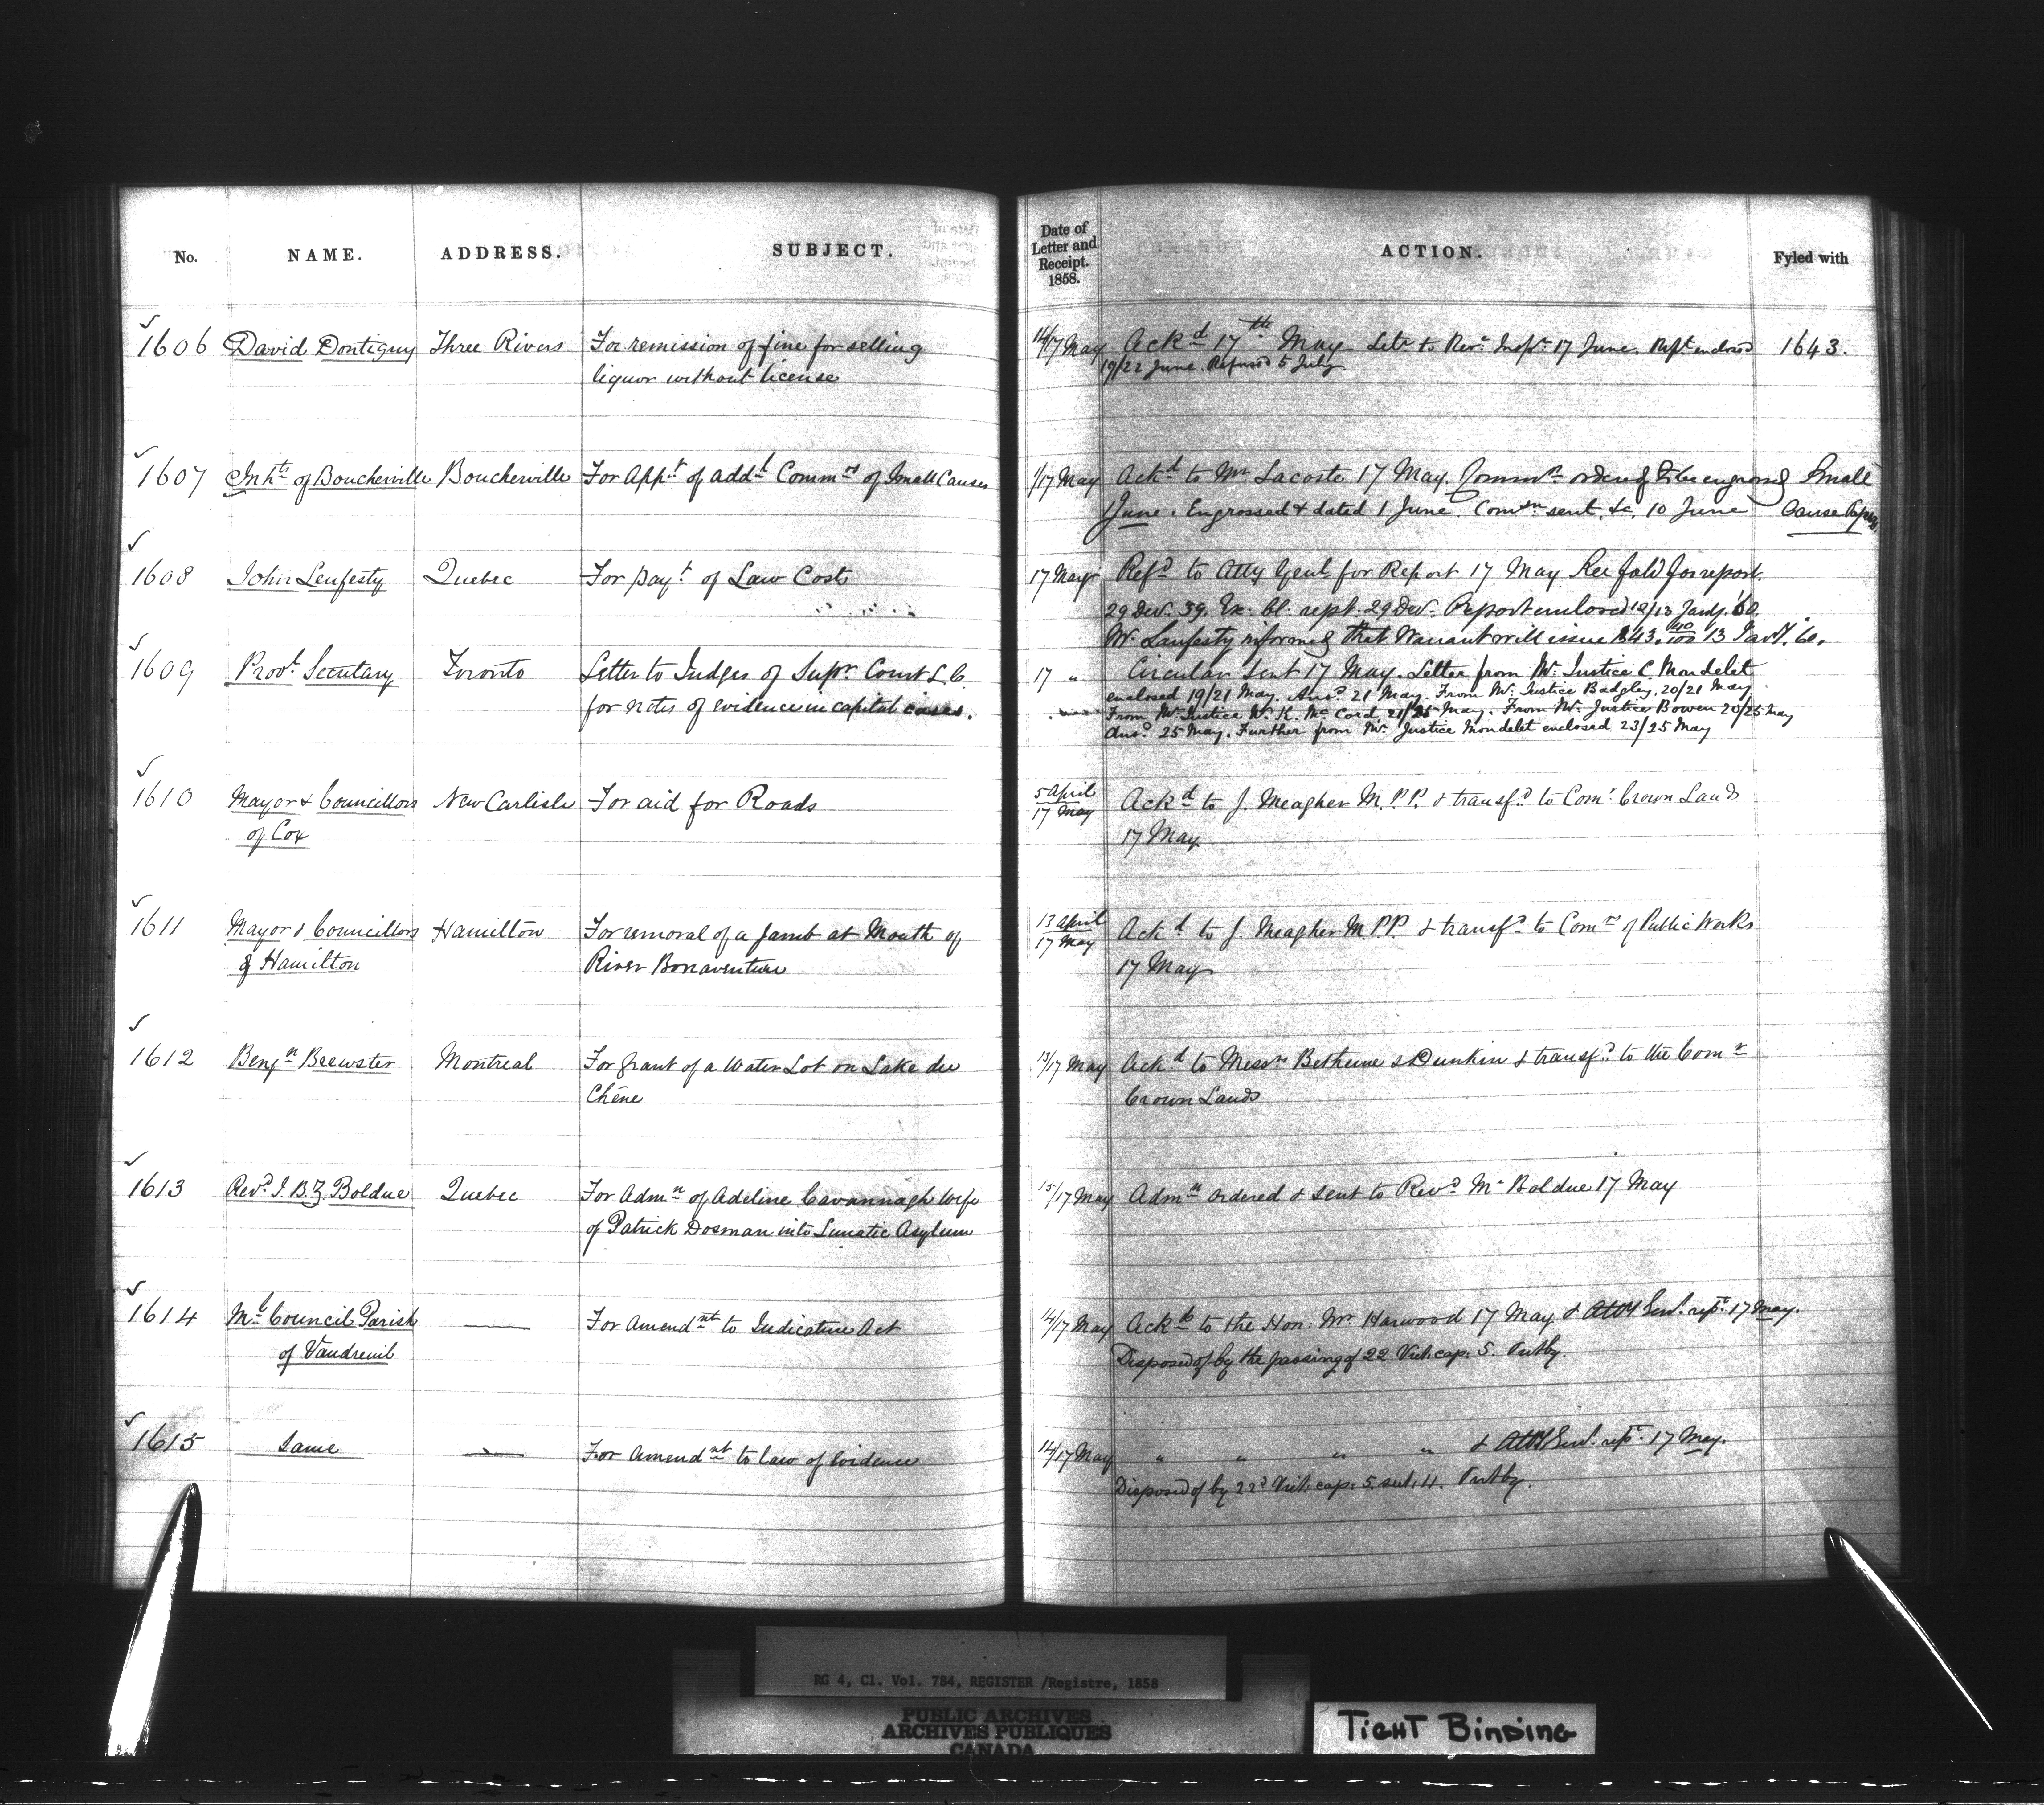 No. NAME. ADDRESS. SUBJECT. Date of Letter and Receipt. 1858. ACTION. Fyled with
1606 David Dontigny Three Rivers For remission of fine for selling 14/17 May Ackd 17th May Letr to Revr Inspr 17 June. Rept enclosed 1643.
liquor without license 19/22 June. Refused 5 July
1607 Inhts of Boucherville Boucherville For Appt of addl Commrs of Small Causes 1/17 May Ackd to Mr Lacoste 17 May. Commn ordered to be engrossed Small
June. Engrossed & dated 1 June. Comsn sent, &c, 10 June Cause
1608 John Lenfesty Quebec For payt of Law Costs 17 May Refd to Atty Genl for Report 17 May See fold for report.
29 Decr. 59. Ex. Cl. rept. 29 Decr. Report enclosed 12/13 Jany. '60.
Mr. Lenfesty informed that Warrant will issue $43.40/100 13 Jany. 60.
1609 Provl Secretary Toronto Letter to Judges of Supr. Court L.C. 17 " Circular sent 17 May. Letter from Mr. Justice C. Mondelet
for notes of evidence in capital cases. enclosed 19/21 May. Ansd. 21 May. From Mr. Justice Badgley, 20/21 May
From Mr. Justice W. K. McCord, 21/25 May. From Mr. Justice Bowen 20/25 May
Ansd. 25 May. Further from Mr. Justice Mondelet enclosed 23/25 May
1610 Mayor & Councillors New Carlisle For aid for Roads 5 April Ackd to J. Meagher M.P.P. & transfd to Comr Crown Lands
of Cox 17 May 17 May
1611 Mayor & Councillors Hamilton For removal of a Jamb at Mouth of 13 April Ackd to J. Meagher M.P.P. & transfd to Comrs of Public Works
of Hamilton River Bonaventure 17 May 17 May
1612 Benjn Brewster Montreal For grant of a Water Lot on Lake du 13/17 May Ackd to Messrs Bethune & Dunkin & transfd to the Comr
Chêne Crown Lands
1613 Revd J. B. Z. Bolduc Quebec For Admn of Adeline Cavannagh wife 15/17 May Admn ordered & sent to Revd Mr Bolduc 17 May
of Patrick Dosman into Lunatic Asylum
1614 Ml Council Parish — For Amendnt to Judicature Act 14/17 May Ackd to the Hon. Mr Harwood 17 May & Atty Genl. rept. 17 May.
of Vaudreuil Disposed of by the passing of 22 Vict. cap. 5.
1615 Same — For Amendnt to law of Evidence 14/17 May " " " " & Atty Genl. rept. 17 May.
Disposed of by 22d Vict. cap. 5. sect. 11.
RG 4, C1. Vol. 784, REGISTER /Registre, 1858
PUBLIC ARCHIVES
ARCHIVES PUBLIQUES
CANADA
TIGHT BINDING